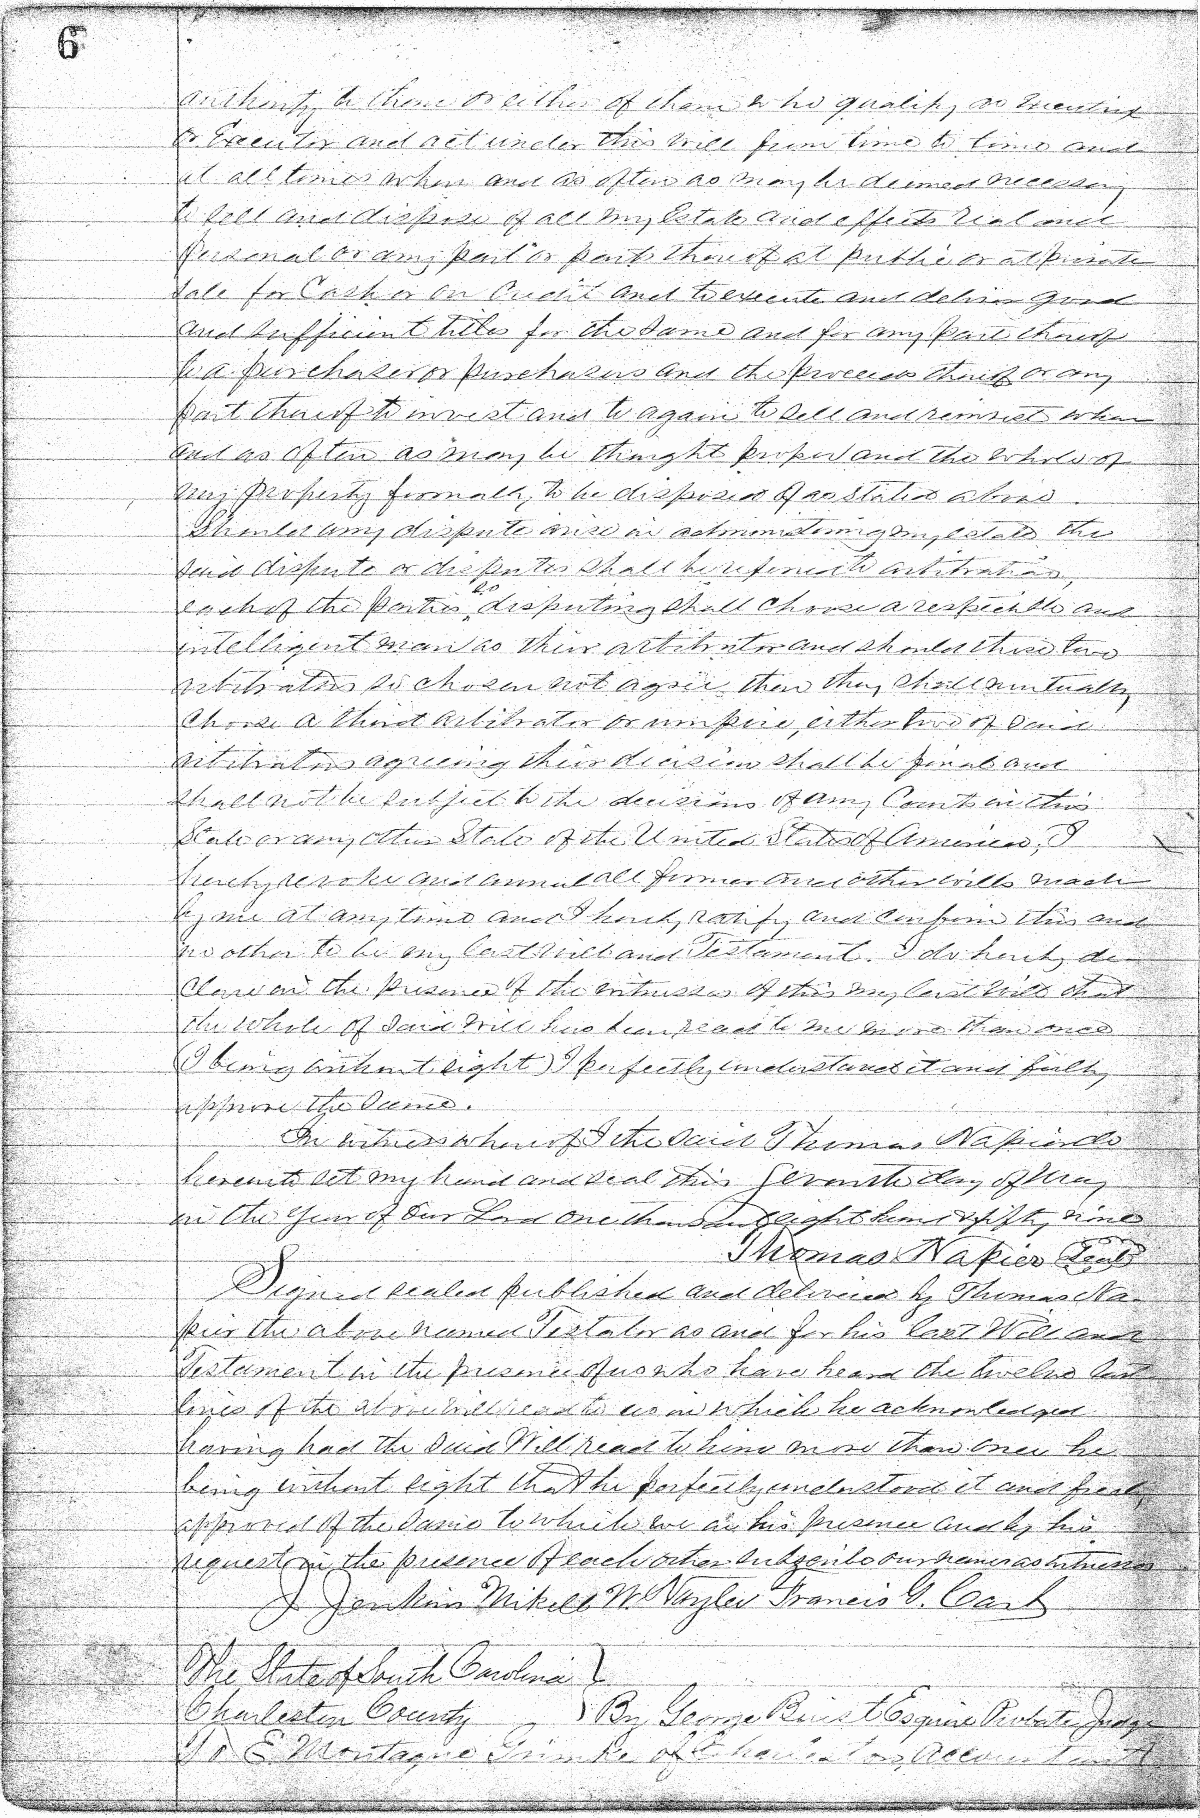 6
authority to them or either of them who qualify as Executrix
or Executor and act under this will from time to time and
at all times when and as often as may be deemed necessary
to sell and dispose of all my Estate and effects real and
personal or any part or parts thereof at public or at private
sale for Cash or on Credit and to execute and deliver good
and sufficient titles for the same and for any part thereof
to a purchaser or purchasers and the proceeds thereof or any
part thereof to invest and to again to sell and reinvest when
and as often as may be thought proper and the whole of
my property formally to be disposed of as stated above.
Should any dispute arise in administering my estate the
said dispute or disputes shall be referred to arbitration,
each of the parties so disputing shall choose a respectable and
intelligent man as their arbitrator and should these two
arbitrators so chosen not agree then they shall mutually
choose a third arbitrator or umpire, either two of said
arbitrators agreeing their decision shall be final and
shall not be subject to the decisions of any Courts in this
State or any other State of the United States of America, I
hereby revoke and annul all former and other wills made
by me at any time and I hereby ratify and confirm this and
no other to be my last will and Testament. I do hereby de-
clare in the presence of the witnesses of this my last will that
the whole of said will has been read to me more than once
(I being without sight) I perfectly understand it and fully
approve the same.
In witness whereof I the said Thomas Napier do
hereunto set my hand and seal this seventh day of May
in the year of Our Lord one thousand eight hund & fifty nine
Thomas Napier Seal
Signed sealed published and delivered by Thomas Na-
pier the above named Testator as and for his last Will and
Testament in the presence of us who have heard the twelve last
lines of the above will read to us in which he acknowledged
having had the said Will read to him more than once he
being without sight that he perfectly understood it and freely
approved of the same to which we in his presence and by his
request in the presence of each other subscribe our names as witnesses
J Jenkins Mikell W. Nayler Francis G. Cart
The State of South Carolina }
Charleston County } By George Buist Esquire Probate Judge
To E Montague Grimke of Charleston, Accountant